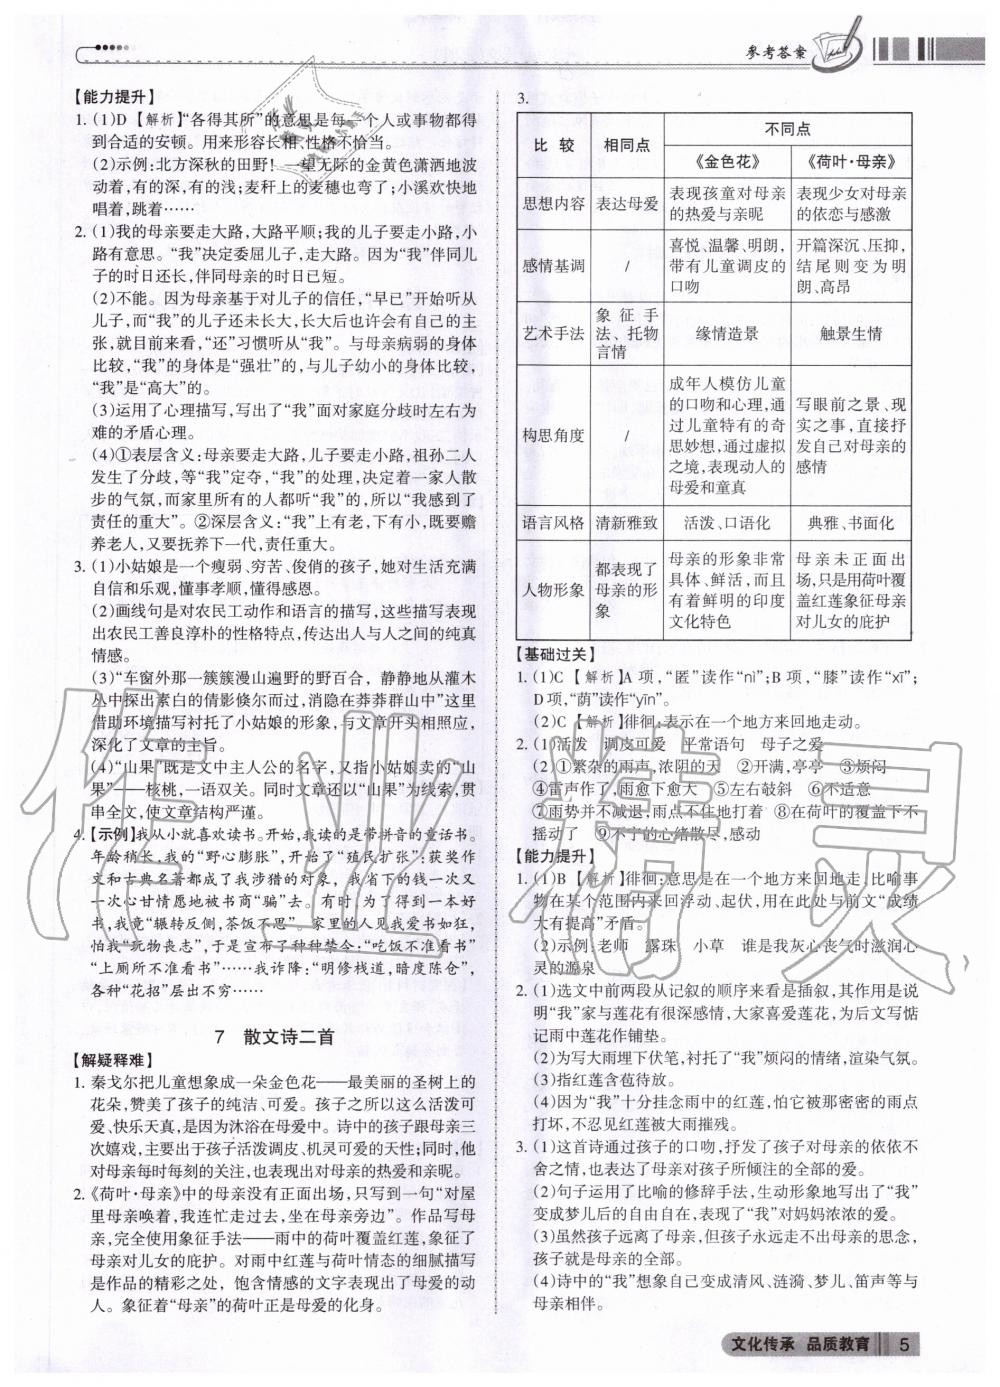 参考答案
【能力提升】
1. (1)D 【解析】“各得其所”的意思是每一个人或事物都得
到合适的安顿。用来形容长相、性格不恰当。
(2)示例:北方深秋的田野!一望无际的金黄色潇洒地波
动着,有的深,有的浅;麦秆上的麦穗也弯了;小溪欢快地
唱着,跳着……
2. (1)我的母亲要走大路,大路平顺;我的儿子要走小路,小
路有意思。“我”决定委屈儿子,走大路。因为“我”伴同儿
子的时日还长,伴同母亲的时日已短。
(2)不能。因为母亲基于对儿子的信任,“早已”开始听从
儿子,而“我”的儿子还未长大,长大后也许会有自己的主
张,就目前来看,“还”习惯听从“我”。与母亲病弱的身体
比较,“我”的身体是“强壮”的,与儿子幼小的身体比较,
“我”是“高大”的。
(3)运用了心理描写,写出了“我”面对家庭分歧时左右为
难的矛盾心理。
(4)①表层含义:母亲要走大路,儿子要走小路,祖孙二人
发生了分歧,等“我”定夺,“我”的处理,决定着一家人散
步的气氛,而家里所有的人都听“我”的,所以“我感到了
责任的重大”。②深层含义:“我”上有老,下有小,既要赡
养老人,又要抚养下一代,责任重大。
3. (1)小姑娘是一个瘦弱、穷苦、俊俏的孩子,她对生活充满
自信和乐观,懂事孝顺,懂得感恩。
(2)画线句是对农民工动作和语言的描写,这些描写表现
出农民工善良淳朴的性格特点,传达出人与人之间的纯真
情感。
(3)“车窗外那一簇簇漫山遍野的野百合，静静地从灌木
丛中探出素白的倩影倏尔而过,消隐在莽莽群山中”这里
借助环境描写衬托了小姑娘的形象,与文章开头相照应,
深化了文章的主旨。
(4)“山果”既是文中主人公的名字,又指小姑娘卖的“山
果”——核桃,一语双关。同时文章还以“山果”为线索,贯
串全文,使文章结构严谨。
4. 【示例】我从小就喜欢读书。开始,我读的是带拼音的童话书。
年龄稍长,我的“野心膨胀”,开始了“殖民扩张”:获奖作
文和古典名著都成了我涉猎的对象，我省下的钱一次又
一次心甘情愿地被书商“骗”去。有时,为了得到一本好
书,我竟“辗转反侧,茶饭不思”。家里的人见我爱书如狂,
怕我“玩物丧志”,于是宣布了种种禁令:“吃饭不准看书”
“上厕所不准看书”……我诈降:“明修栈道,暗度陈仓”,
各种“花招”层出不穷……
7 散文诗二首
【解疑释难】
1. 泰戈尔把儿童想象成一朵金色花——最美丽的圣树上的
花朵,赞美了孩子的纯洁、可爱。孩子之所以这么活泼可
爱、快乐天真,是因为沐浴在母爱中。诗中的孩子与母亲三
次嬉戏,主要出于孩子活泼调皮、机灵可爱的天性;同时,他
对母亲每时每刻的关注,也表现出对母亲的热爱和亲昵。
2. 《荷叶·母亲》中的母亲没有正面出场,只写到一句“对屋
里母亲唤着,我连忙走过去,坐在母亲旁边”。作品写母
亲,完全使用象征手法——雨中的荷叶覆盖红莲,象征了
母亲对儿女的庇护。对雨中红莲与荷叶情态的细腻描写
是作品的精彩之处，饱含情感的文字表现出了母爱的动
人。象征着“母亲”的荷叶正是母爱的化身。
3.
比较 相同点 不同点
《金色花》 《荷叶·母亲》
思想内容 表达母爱 表现孩童对母亲的热爱与亲昵 表现少女对母亲的依恋与感激
感情基调 / 喜悦、温馨、明朗,带有儿童调皮的口吻 开篇深沉、压抑,结尾则变为明朗、高昂
艺术手法 象征手法、托物言情 缘情造景 触景生情
构思角度 / 成年人模仿儿童的口吻和心理,通过儿童特有的奇思妙想,通过虚拟之境,表现动人的母爱和童真 写眼前之景、现实之事,直接抒发自己对母亲的感情
语言风格 清新雅致 活泼、口语化 典雅、书面化
人物形象 都表现了母亲的形象 母亲的形象非常具体、鲜活,而且有着鲜明的印度文化特色 母亲未正面出场,只是用荷叶覆盖红莲象征母亲对儿女的庇护
【基础过关】
1. (1)C 【解析】A 项,“匿”读作“nì”;B 项,“膝”读作“xī”;
D 项,“荫”读作“yīn”。
(2)C 【解析】徘徊:表示在一个地方来回地走动。
2. (1)活发 调皮可爱 平常语句 母子之爱
(2 ①繁杂的雨声,浓阴的天 ②开满,亭亭 ③烦闷
④雷声作了,雨愈下愈大 ⑤左右敧斜 ⑥不适意
⑦雨势并不减退,雨点不住地打着 ⑧在荷叶的覆盖下不
摇动了 ⑨不宁的心绪散尽,感动
【能力提升】
1. (1)B 【解析】徘徊:意思是在一个地方来回地走,比喻事
物在某个范围内来回浮动、起伏,用在此处与前文“成绩
大有提高”矛盾。
(2)示例:老师 露珠 小草 谁是我灰心丧气时滋润心
灵的源泉
2. (1)选文中前两段从记叙的顺序来看是插叙,其作用是说
明“我”家与莲花有很深感情，大家喜爱莲花,为后文写惦
记雨中莲花作铺垫。
(2)为写大雨埋下伏笔,衬托了“我”烦闷的情绪,渲染气氛。
(3)指红莲含苞待放。
(4)因为“我”十分挂念雨中的红莲，怕它被那密密的雨点
打坏,不忍见红莲被大雨摧残。
3. (1)这首诗通过孩子的口吻，抒发了孩子对母亲的依依不
舍之情,也表达了母亲对孩子所倾注的全部的爱。
(2)句子运用了比喻的修辞手法,生动形象地写出了“我”
变成梦儿后的自由自在,表现了“我”对妈妈浓浓的爱。
(3)虽然孩子远离了母亲，但孩子永远走不出母亲的思念，
孩子就是母亲的全部。
(4)诗中的“我”想象自己变成清风、涟漪、梦儿、笛声等与
母亲相伴。
文化传承 品质教育 5
作业精灵